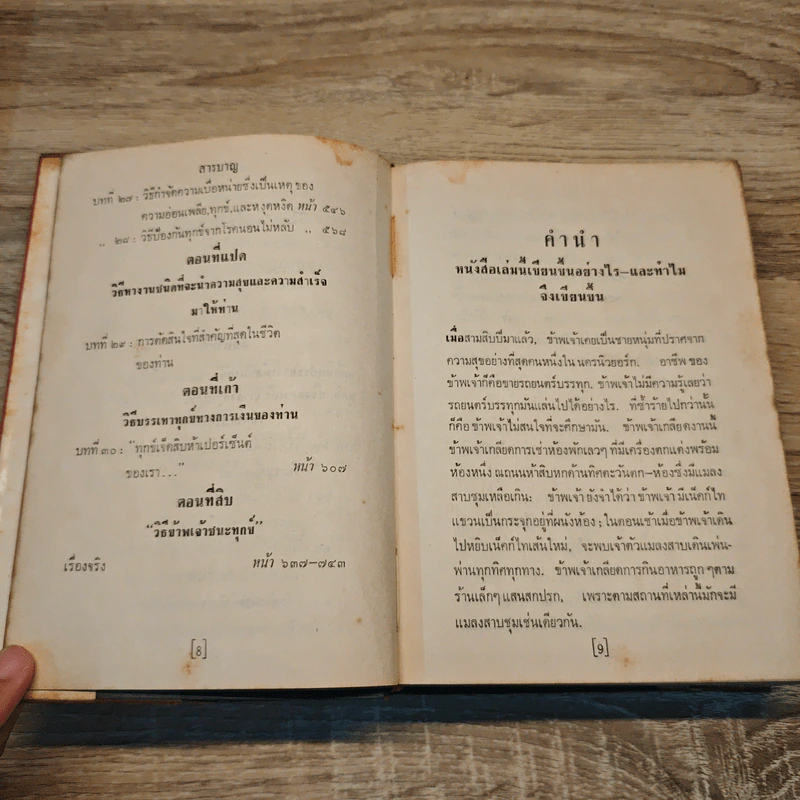 สารบาญ
บทที่ ๒๗ : วิธีกำจัดความเบื่อหน่ายซึ่งเป็นเหตุ ของ
ความอ่อนเพลีย,ทุกข์,และหงุดหงิด หน้า ๕๔๖
,, ๒๘ : วิธีป้องกันทุกข์จากโรคนอนไม่หลับ ,, ๕๖๘
ตอนที่แปด
วิธีหางานชนิดที่จะนำความสุขและความสำเร็จ
มาให้ท่าน
บทที่ ๒๙ : การตัดสินใจที่สำคัญที่สุดในชีวิต
ของท่าน
ตอนที่เก้า
วิธีบรรเทาทุกข์ทางการเงินของท่าน
บทที่ ๓๐ : "ทุกข์เจ็ดสิบห้าเปอร์เซ็นต์
ของเรา..." หน้า ๖๐๗
ตอนที่สิบ
"วิธีข้าพเจ้าชนะทุกข์"
เรื่องจริง หน้า ๖๓๗–๗๔๓
[8]
คำนำ
หนังสือเล่มนี้เขียนขึ้นอย่างไร—และทำไม
จึงเขียนขึ้น
เมื่อสามสิบปีมาแล้ว, ข้าพเจ้าเคยเป็นชายหนุ่มที่ปราศจาก
ความสุขอย่างที่สุดคนหนึ่งใน นครนิวยอร์ก. อาชีพ ของ
ข้าพเจ้าก็คือขายรถยนตร์บรรทุก. ข้าพเจ้าไม่มีความรู้เลยว่า
รถยนตร์บรรทุกมันแล่นไปได้อย่างไร. ที่ซ้ำร้ายไปกว่านั้น
ก็คือ ข้าพเจ้าไม่สนใจที่จะศึกษามัน. ข้าพเจ้าเกลียดงานนี้
ข้าพเจ้าเกลียดการเช่าห้องพักเลวๆ ที่มีเครื่องตกแต่งพร้อม
ห้องหนึ่ง ณถนนห้าสิบหกด้านทิศตะวันตก–ห้องซึ่งมีแมลง
สาบชุมเหลือเกิน: ข้าพเจ้า ยังจำได้ว่า ข้าพเจ้า มีเน็คก์ไท
แขวนเป็นกระจุกอยู่ที่ผนังห้อง; ในตอนเช้าเมื่อข้าพเจ้าเดิน
ไปหยิบเน็คก์ไทเส้นใหม่, จะพบเจ้าตัวแมลงสาบเดินเพ่น-
พ่านทุกทิศทุกทาง. ข้าพเจ้าเกลียดการกินอาหารถูก ๆตาม
ร้านเล็กๆ แสนสกปรก, เพราะตามสถานที่เหล่านี้มักจะมี
แมลงสาบชุมเช่นเดียวกัน.
[9]